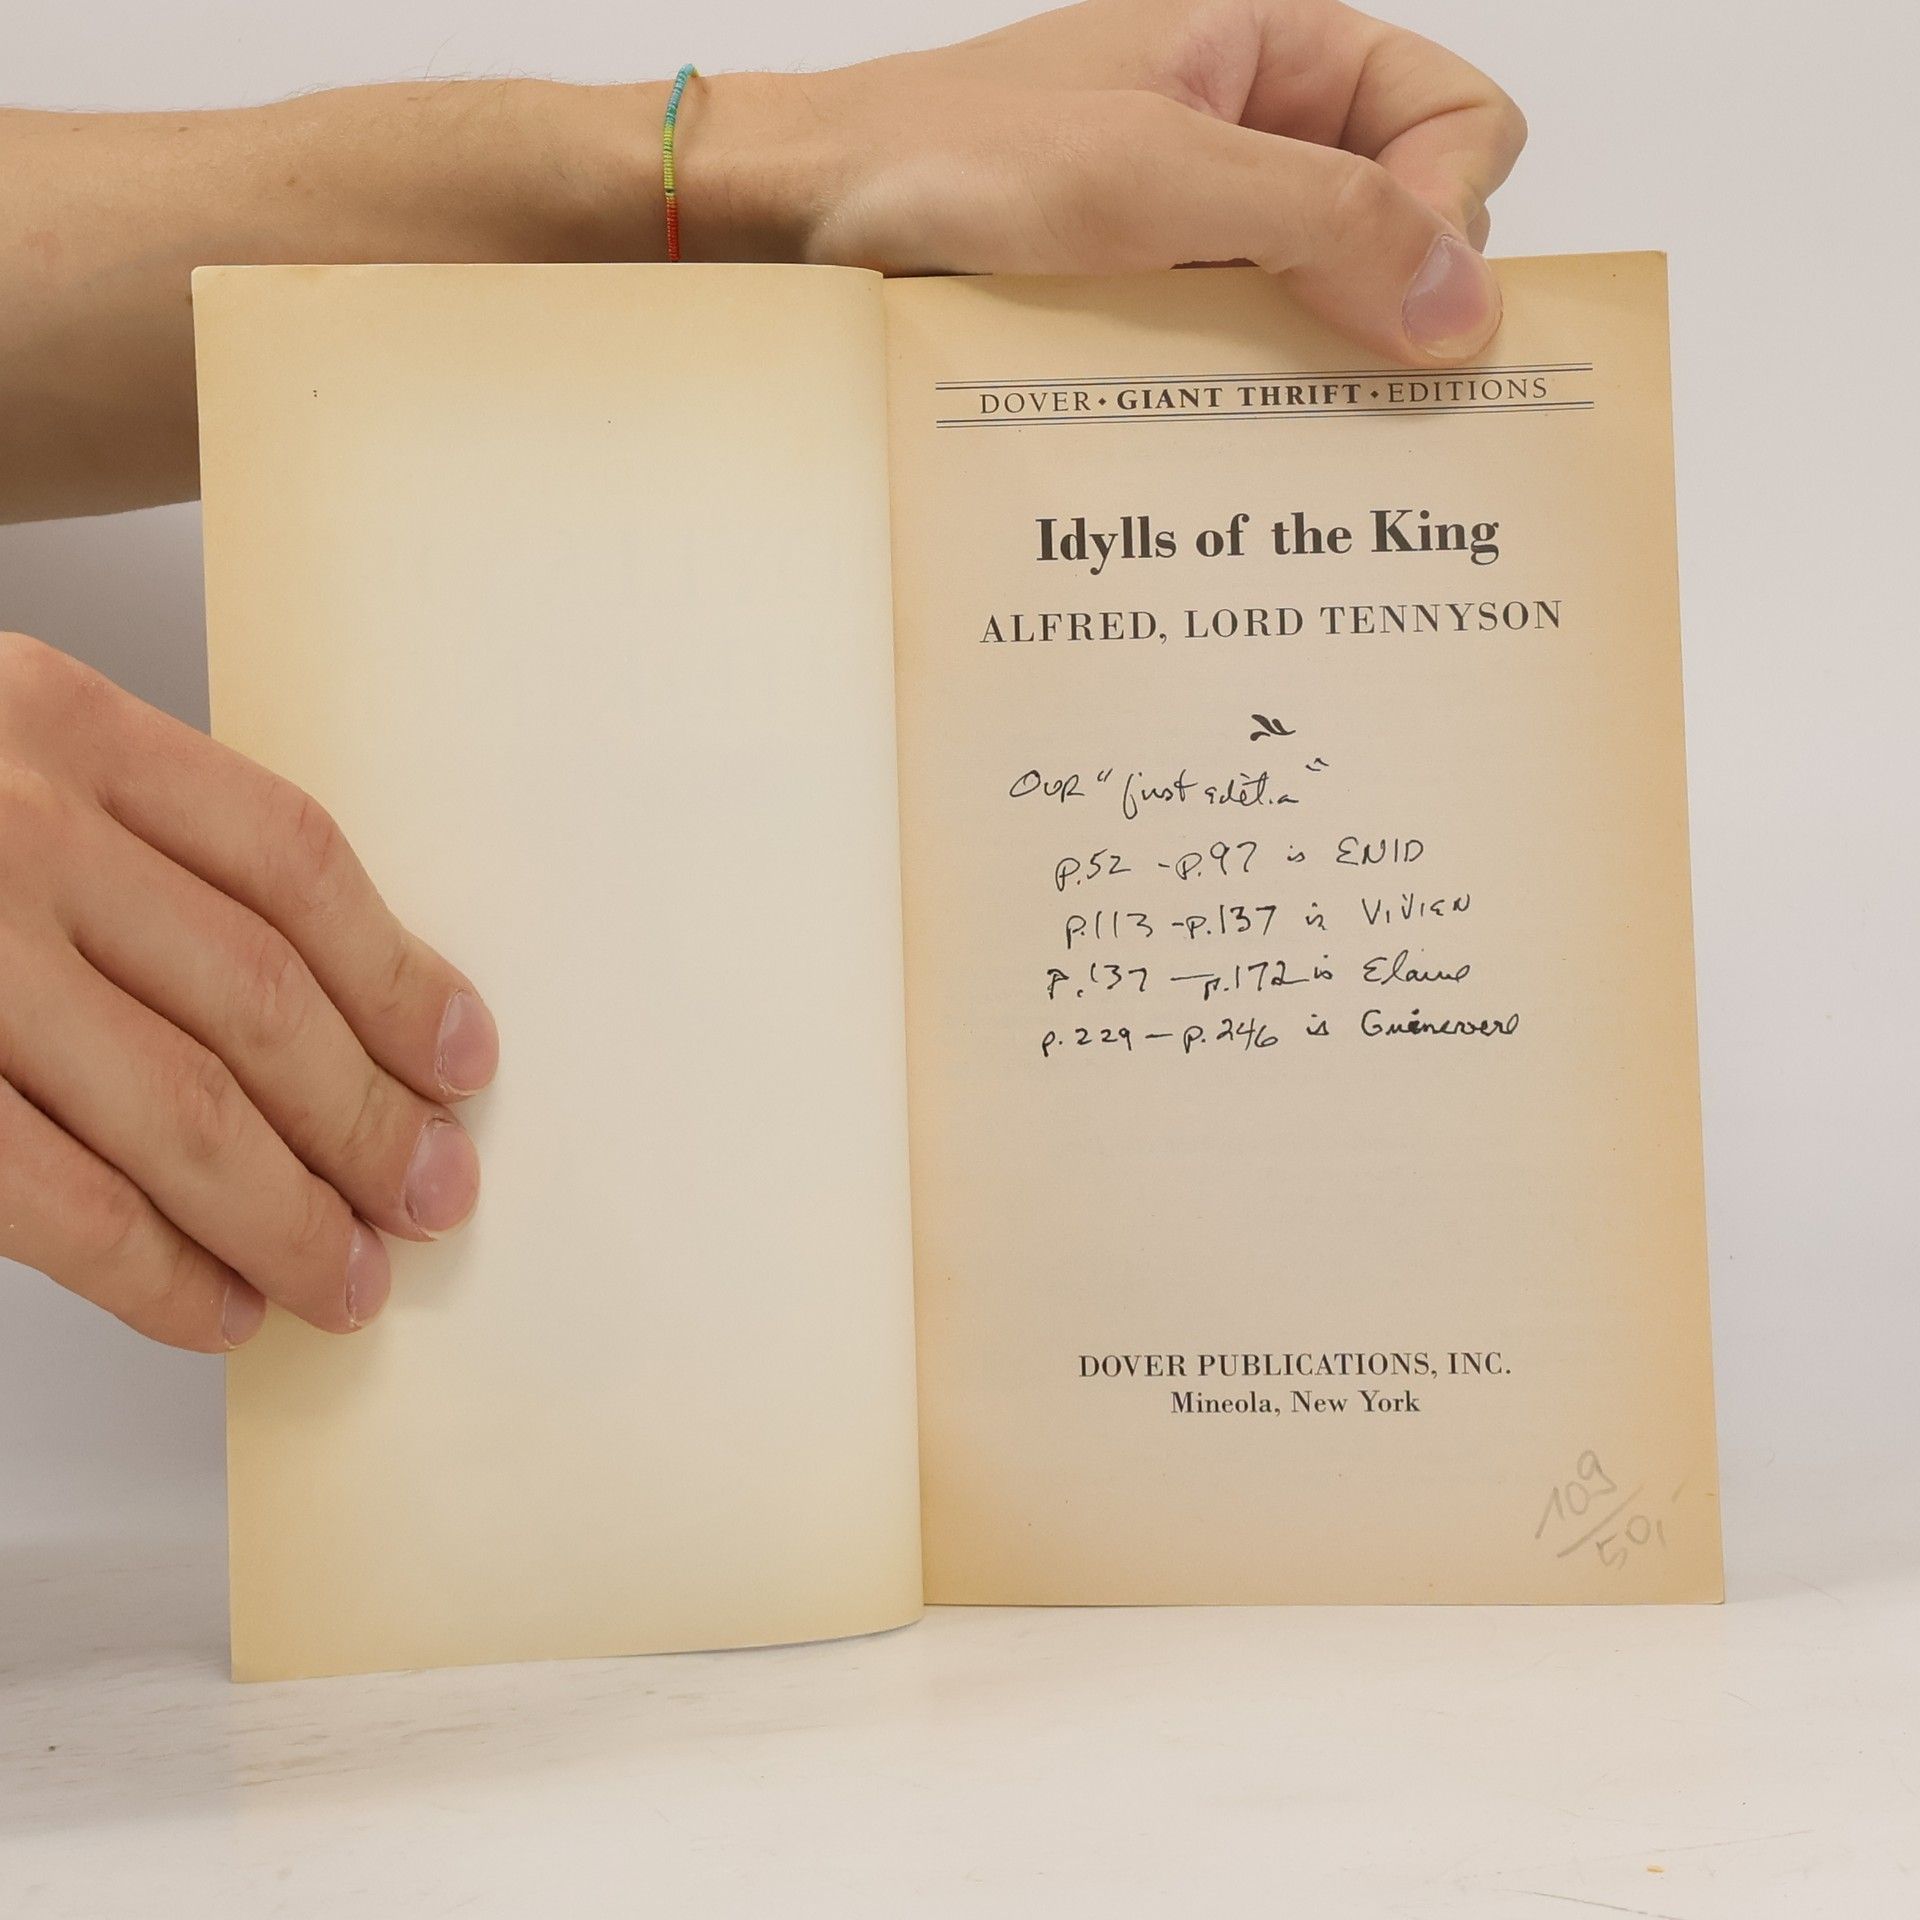 DOVER • GIANT THRIFT • EDITIONS
Idylls of the King
ALFRED, LORD TENNYSON
OUR "first edition"
p.52 - p.97 is ENID
p.113 - p.137 is VIVIEN
p.137 — p.172 is Elaine
p.229 — p.246 is Guinevere
DOVER PUBLICATIONS, INC.
Mineola, New York
109
50,